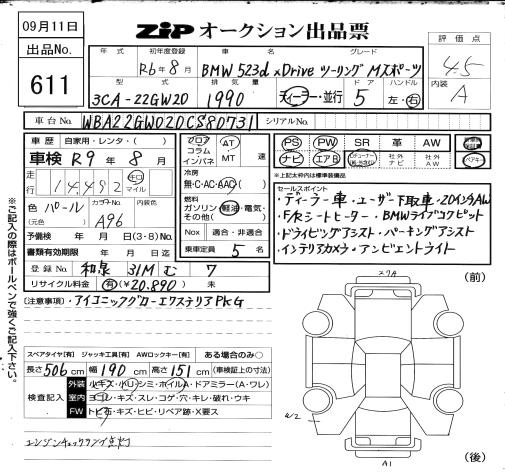 09月11日
ZiP オークション出品票
出品No. 611
年式 初年度登録 R6年8月
車名 BMW 523d xDrive ツーリング Mスポーツ
グレード
評価点 4.5
内装 A
型式 3CA-22GW20
排気量 1990
ディーラー・並行
ドア 5
ハンドル 左・右
車台No. WBA22GW020CS80731
シリアルNo.
車歴 自家用・レンタ・( )
車検 R9年8月
走行 14,492 km マイル
色 パール
(元色)
カラーNo. A96
内装色
予備検 年 月 日(3・8)No.
書類有効期限 年 月 日迄
登録No. 和泉 31M む 7
リサイクル料金 有(¥20,890) 未
フロア コラム インパネ
AT MT 速
冷房 無・C・AC・AAC
燃料 ガソリン・軽油・電気・その他( )
Nox 適合・非適合
乗車定員 5 名
PS PW SR 革 AW
ナビ エアB 社外ナビ 社外AW
※上記太文字は標準装備品
セールスポイント
・ディーラー車・ユーザー下取車・20インチAW
・F/Rシートヒーター・BMWライブコクピット
・ドライビングアシスト・パーキングアシスト
・インテリアカメラ・アンビエントライト
[注意事項]・アイコニックグローエクステリアPKG
スペアタイヤ[有] ジャッキ工具[有] AWロックキー[有] ある場合のみ○
長さ 506 cm 幅 190 cm 高さ 151 cm (車検証上の寸法)
検査記入
外装 小キズ・小凹・シミ・ホイルA・ドアミラー(A・ワレ)
室内 ヨゴレ・キズ・スレ・コゲ・穴・キレ・破れ・ウキ
FW トビ石・キズ・ヒビ・リペア跡・X要ス
エンジンチェックランプ点灯
※ご記入の際はボールペンで強くご記入下さい。
(前)
W2
A1
(後)